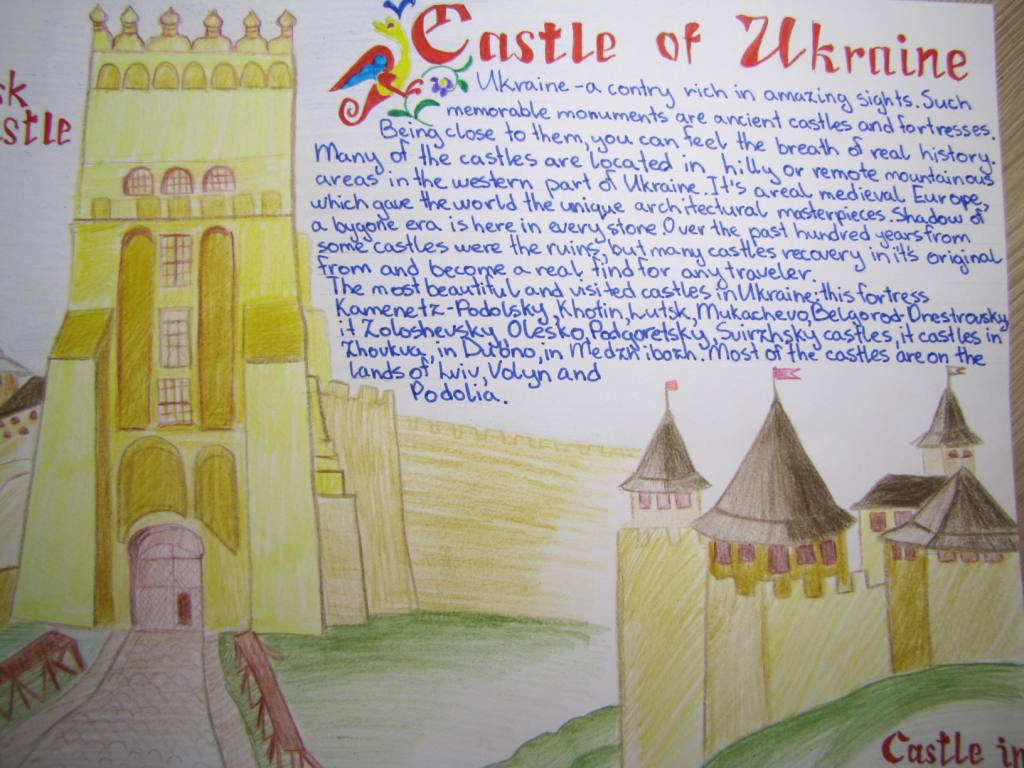 Castle of Ukraine
sk
stle
Ukraine - a contry rich in amazing sights. Such
memorable monuments are ancient castles and fortresses.
Being close to them, you can feel the breath of real history.
Many of the castles are located in hilly or remote mountainous
areas in the western part of Ukraine. It's a real medieval Europe,
which gave the world the unique architectural masterpieces. Shadow of
a bygone era is here in every stone. Over the past hundred years from
some castles were the ruins, but many castles recovery in it's original
from and become a real find for any traveler.
The most beautiful and visited castles in Ukraine: this fortress
Kamenetz-Podolsky, Khotin, Lutsk, Mukachevo, Belgorod-Dnestrovsky
it Zoloshevsky, Olesko, Podgoretsky, Svirzhsky castles, it castles in
Zhovkva, in Dubno, in Medzhibozh. Most of the castles are on the
lands of Lviv, Volyn and
Podolia.
Castle in